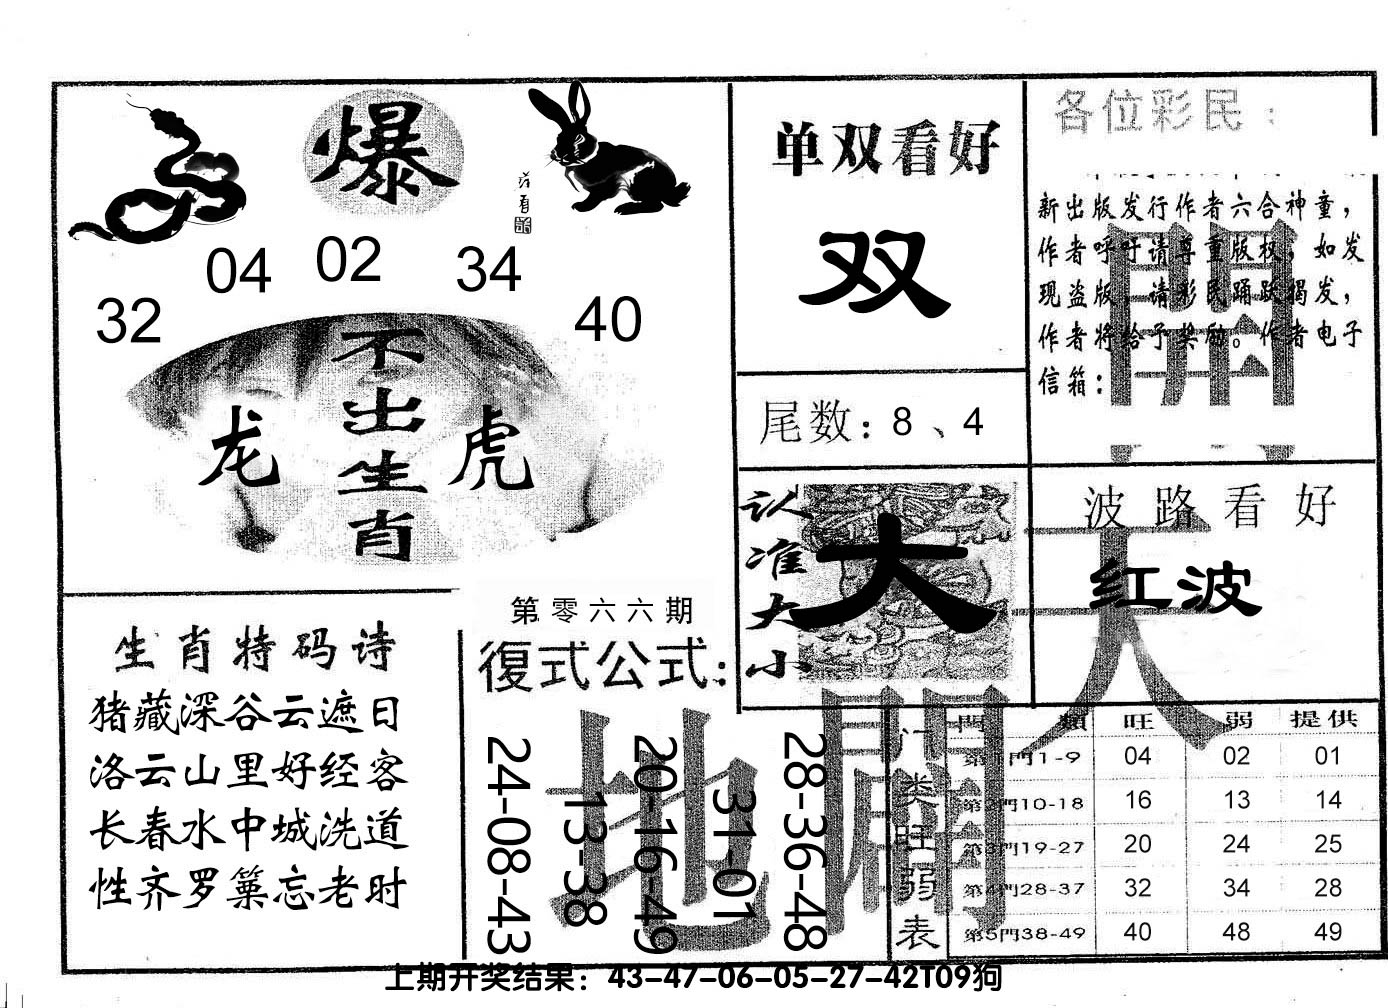 爆
04 02 34
32 40
不出生肖
龙 虎
单双看好
双
尾数：8、4
各位彩民：
新出版发行作者六合神童，
作者呼吁请尊重版权，如发
现盗版，请彩民踊跃揭发，
作者将给予奖励。作者电子
信箱：
開
认准大小
大
波路看好
红波
天
生肖特码诗
猪藏深谷云遮日
洛云山里好经客
长春水中城洗道
性齐罗篥忘老时
第零六六期
復式公式：
24-08-43
13-38
20-16-49
31-01
28-36-48
地
門類 旺 弱 提供
门类旺弱表
第1門1-9 04 02 01
第2門10-18 16 13 14
第3門19-27 20 24 25
第4門28-37 32 34 28
第5門38-49 40 48 49
上期开奖结果：43-47-06-05-27-42T09狗